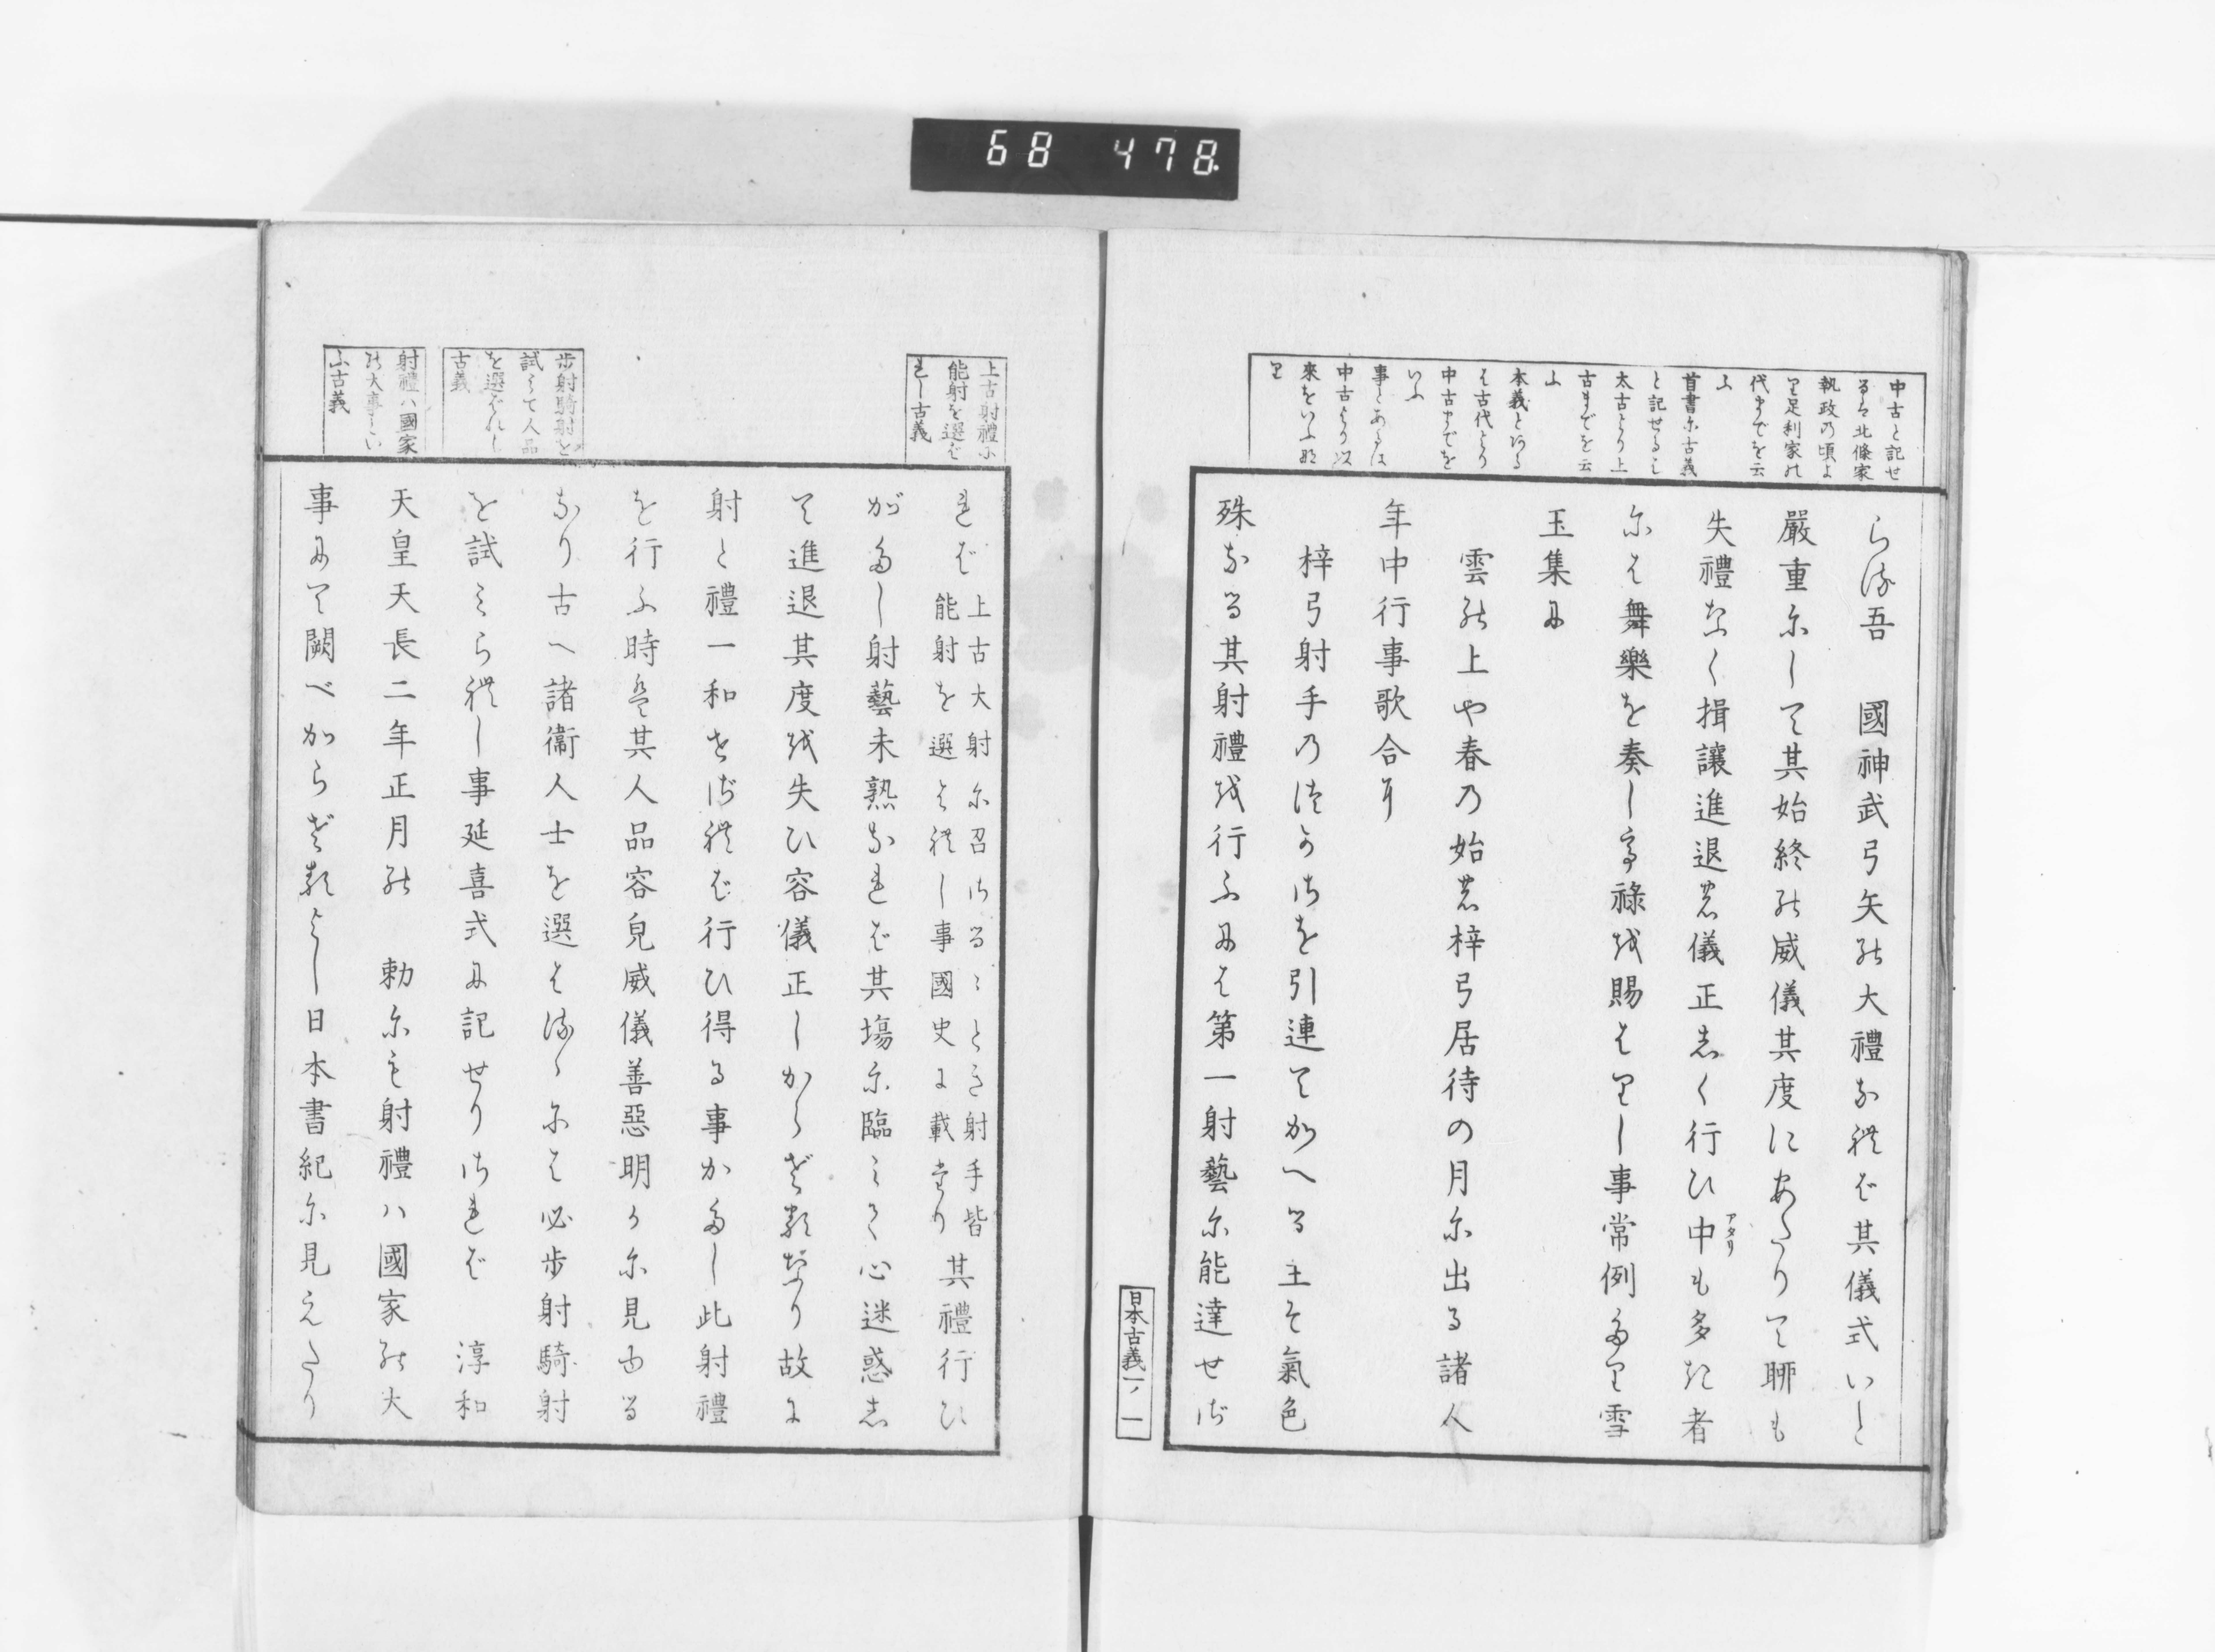 68 478.
中古と記せ
るは北條家
執政乃頃よ
り足利家の
代までを云
ふ
首書に古義
と記せるは
太古より上
古までを云
ふ
本義とある
は古代より
中古までを
いふ
事とあるは
中古より以
來をいふな
り
らず吾 國神武弓矢の大禮なればば其儀式いと
嚴重にして其始終の威儀其度にあたりて聊も
失禮なく揖讓進退の儀正しく行ひ中も多き者
アタリ
には舞樂を奏し亨祿を賜はりし事常例たり雪
玉集に
雲の上や春の始の梓弓居待の月に出る諸人
年中行事歌合に
梓弓射手のつかさを引連てかへる主そ氣色
殊なる其射禮を行ふには第一射藝に能達せざ
日本古義一ノ 一
上古射禮に
能射を選ば
れし古義
歩射騎射を
試みて人品
を選ばれし
古義
射禮ハ國家
の大事とい
ふ古義
れば
上古大射に召さるゝとき射手皆
能射を選はれし事國史に載たり
其禮行ひ
がたし射藝未熟なれば其塲に臨みて心迷惑し
て進退其度を失ひ容儀正しからざるなり故に
射と禮一和せざれば行ひ得る事かたし此射禮
を行ふ時は其人品容皃威儀善惡明かに見ゆる
なり古へ諸衞人士を選はるゝには必歩射騎射
を試みられし事延喜式に記せりされば 淳和
天皇天長二年正月の 勅にも射禮ハ國家の大
事にて闕べからざるよし日本書紀に見えたり